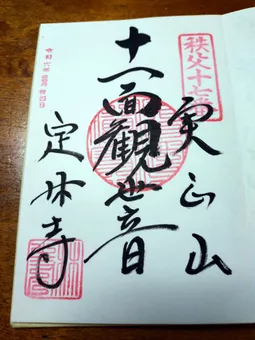 秩父十七番
実正山
十一面観世音
定林寺
令和六年